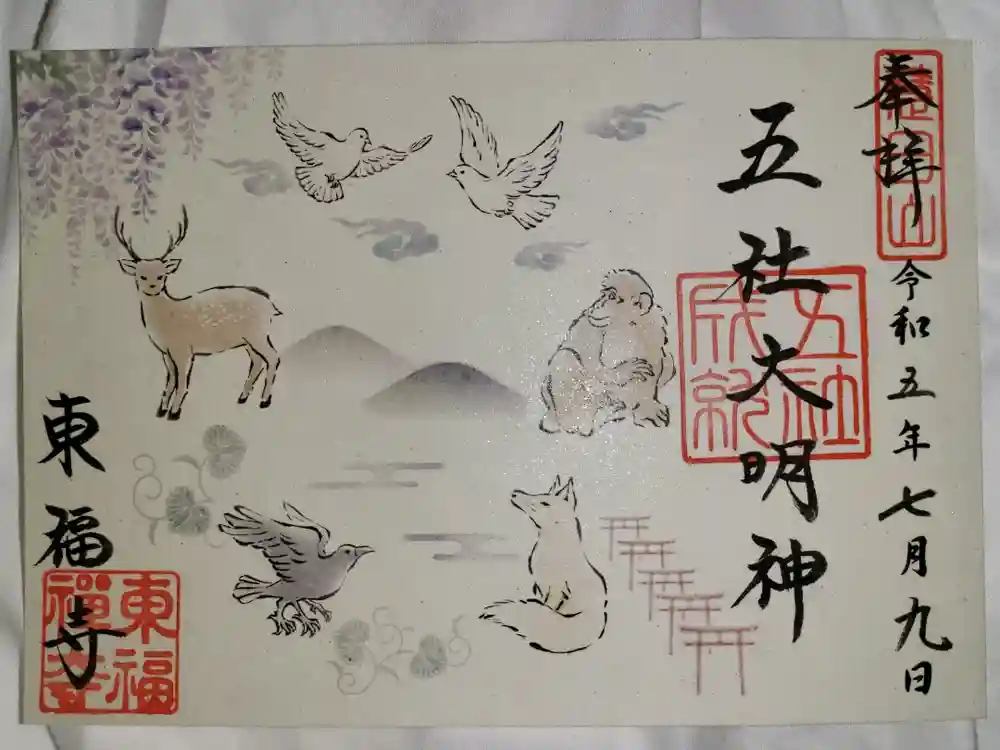 奉拝
令和五年七月九日
五社大明神
五社
成就
東福寺
東福
禅寺